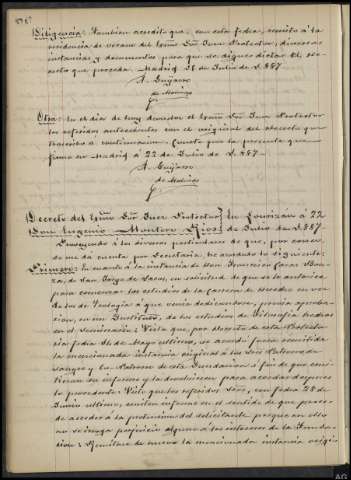 Diligencia: Tambien acredito que, con esta fecha, remito á la
residencia de verano del Ilmo Sr Juez Protector, diversas
instancias y documentos para que se digne dictar el de-
creto que proceda. Madrid 21 de Julio de 1.887.
A. Guijarro
de Molina
Otra: En el dia de hoy devuelve el Ilmo Sr Juez Protector
los referidos antecedentes con el original del decreto que
trascribo a continuacion. Consta por la presente que
firmo en Madrid á 22 de Julio de 1.887.
A. Guijarro
de Molina
Decreto del Ilmo Sr Juez Protector En Lourizan á 22
Don Eugenio Montero Rios: de Julio de 1.887.
Proveyendo á los diversos particulares de que, por conse-
se me da cuenta por Secretaria, he acordado lo siguiente:
Primero: En cuanto á la instancia de Don Francisco
de San Jorge de Sacos, en solicitud de que se le autorice
para conmutar los estudios de la carrera de Derecho en vez
de los de Teologia á que venia dedicandose, previa aproba-
cion, en un Instituto, de los estudios de Filosofia hechos
en el Seminario: Visto que, por decreto de esta Protecto-
ria fecha 31 de Mayo ultimo, se acordó fuera remitida
la mencionada instancia original á los Sres Patronos de
sangre y Co-Patrono de esta Fundacion á fin de que emi-
tieran su informe y la devolvieran para acordar despues
lo procedente: Visto que los referidos Sres, con fecha 28 de
Junio ultimo, emiten informe en el sentido de que proce-
de acceder á la pretension del solicitante porque en ello
no se irroga perjuicio alguno á los intereses de la Funda-
cion: Remitase de nuevo la mencionada instancia origi-